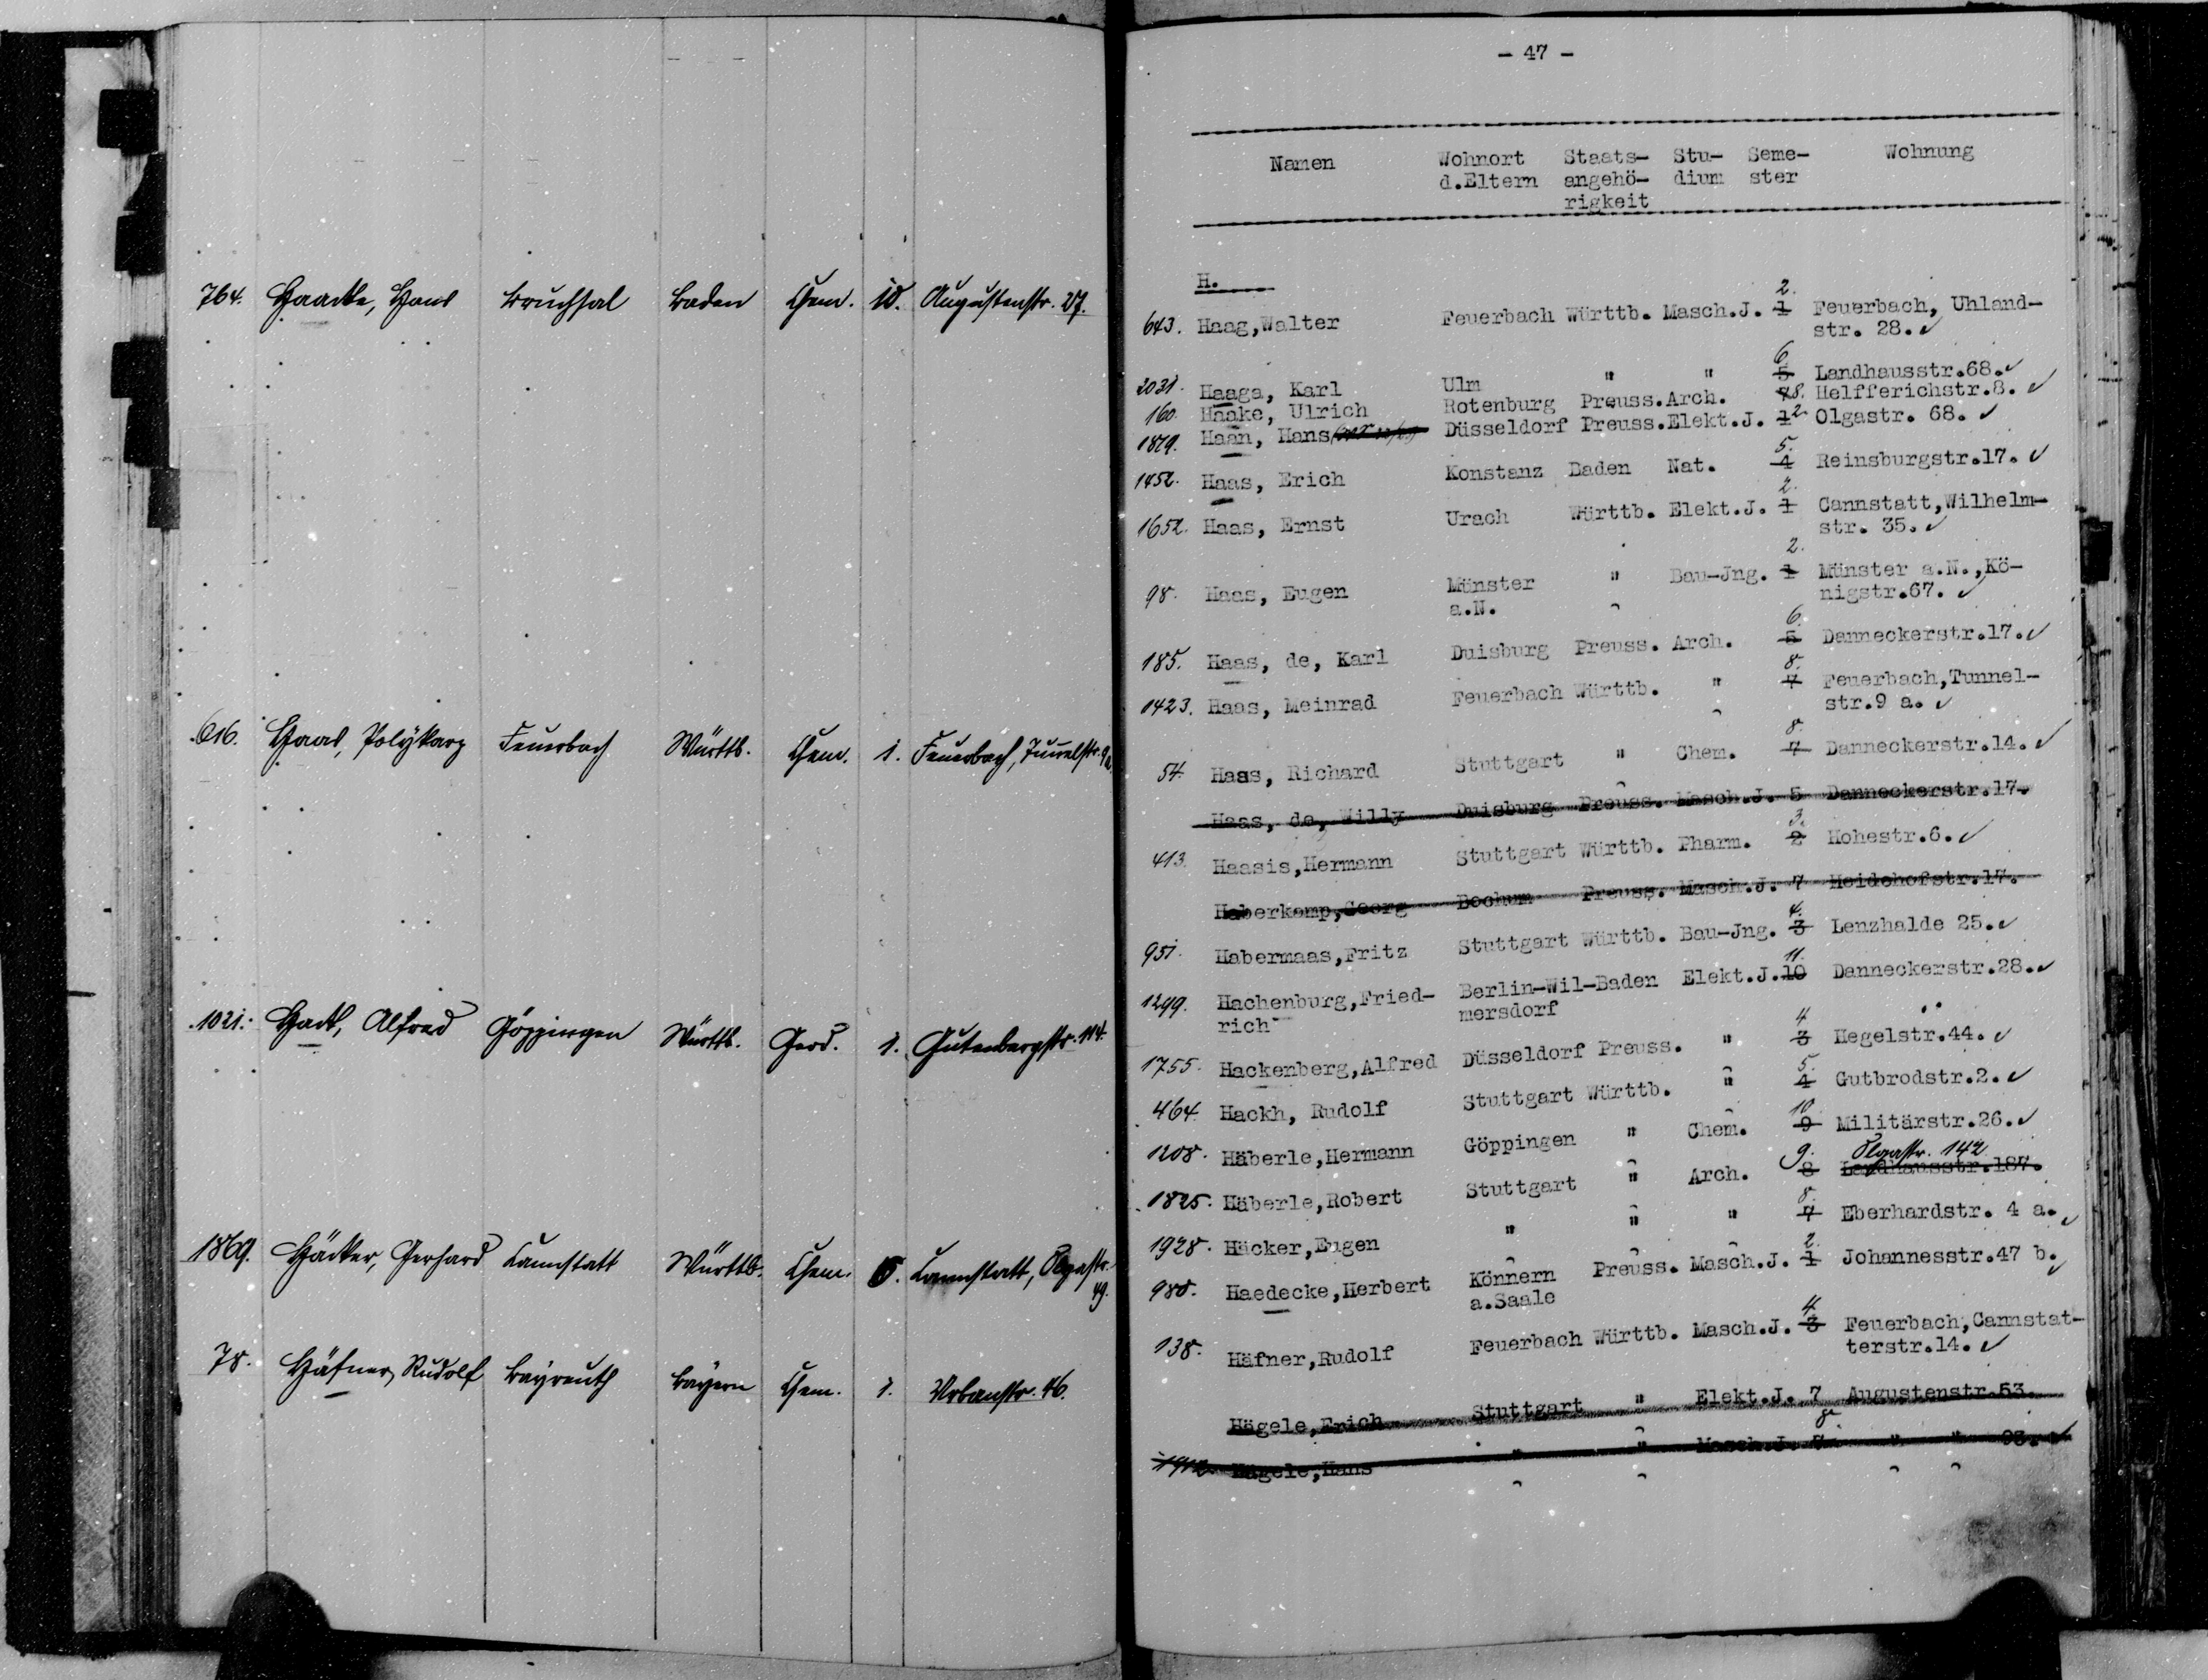 764. Haacke, Hans Bruchsal Baden Chem. 10. Augustenstr. 27.
616. Haas, Polykarp Feuerbach Württb. Chem. 1. Feuerbach, Tunnelstr. 9a.
1021. Alfred Göppingen Württb. 1. Gutenbergstr. 114.
1869. Häcker, Gerhard Cannstatt Württb. Chem. Cannstatt, Olgastr.
49.
78. Häfner, Rudolf Bayreuth Bayern Chem. 1. Urbanstr. 46.
- 47 -
Namen Wohnort Staats- Stu- Seme- Wohnung
d.Eltern angehö- dium ster
rigkeit
H.
2.
643. Haag,Walter Feuerbach Württb. Masch.J. 1 Feuerbach, Uhland-
str. 28. ✓
6
2031. Haaga, Karl Ulm " " 5 Landhausstr.68. ✓
160. Haake, Ulrich Rotenburg Preuss.Arch. 7 8. Helfferichstr.8. ✓
1879. Haan, Hans Düsseldorf Preuss.Elekt.J. 1 2. Olgastr. 68. ✓
5.
1452. Haas, Erich Konstanz Baden Nat. 4 Reinsburgstr.17. ✓
2.
1652. Haas, Ernst Urach Württb. Elekt.J. 1 Cannstatt,Wilhelm-
str. 35. ✓
2.
98. Haas, Eugen Münster " Bau-Jng. 1 Münster a.N.,Kö-
a.N. nigstr.67. ✓
6.
185. Haas, de, Karl Duisburg Preuss. Arch. 5 Danneckerstr.17. ✓
8.
1423. Haas, Meinrad Feuerbach Württb. " 7 Feuerbach,Tunnel-
str.9 a. ✓
8.
54. Haas, Richard Stuttgart " Chem. 7 Danneckerstr.14. ✓
Haas, de, Willy Duisburg Preuss. Masch.J. 5 Danneckerstr.17.
3.
413. Haasis,Hermann Stuttgart Württb. Pharm. 2 Hohestr.6. ✓
Haberkamp,Georg Bochum Preuss. Masch.J. 7 Heidehofstr.17.
4.
951. Habermaas,Fritz Stuttgart Württb. Bau-Jng. 3 Lenzhalde 25. ✓
11.
1299. Hachenburg,Fried- Berlin-Wil-Baden Elekt.J.10 Danneckerstr.28. ✓
rich mersdorf
4
1755. Hackenberg,Alfred Düsseldorf Preuss. " 3 Hegelstr.44. ✓
5.
464. Hackh, Rudolf Stuttgart Württb. " 4 Gutbrodstr.2. ✓
10.
1208. Häberle,Hermann Göppingen " Chem. 9 Militärstr.26. ✓
9. Olgastr. 142
1825. Häberle,Robert Stuttgart " Arch. 8 Landhausstr.187.
8.
1928. Häcker,Eugen " " " 7 Eberhardstr. 4 a. ✓
2.
980. Haedecke,Herbert Könnern Preuss. Masch.J. 1 Johannesstr.47 b. ✓
a.Saale
4
138. Häfner,Rudolf Feuerbach Württb. Masch.J. 3 Feuerbach,Cannstat-
terstr.14. ✓
Hägele,Erich Stuttgart " Elekt.J. 7 Augustenstr.53.
Hägele,Hans " " Masch.J. 7 " " 93. ✓